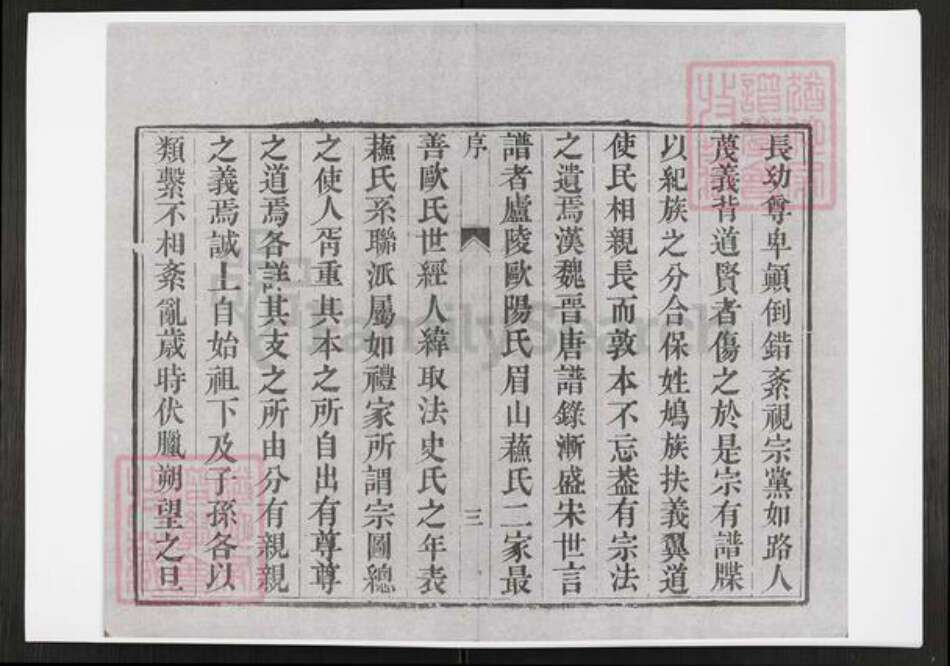 長幼尊卑顚倒錯紊視宗黨如路人
蔑義背道賢者傷之於是宗有譜牒
以紀族之分合保姓鳩族扶義翼道
使民相親長而敦本不忘葢有宗法
之遺焉漢魏晋唐譜錄漸盛宋世言
譜者廬陵歐陽氏眉山蘓氏二家最
序
三
善歐氏世經人緯取法史氏之年表
蘓氏系聯派屬如禮家所謂宗圖總
之使人胥重其本之所自出有尊尊
之道焉各詳其支之所由分有親親
之義焉誠上自始祖下及子孫各以
類繫不相紊亂歲時伏臘朔望之旦
FamilySearch